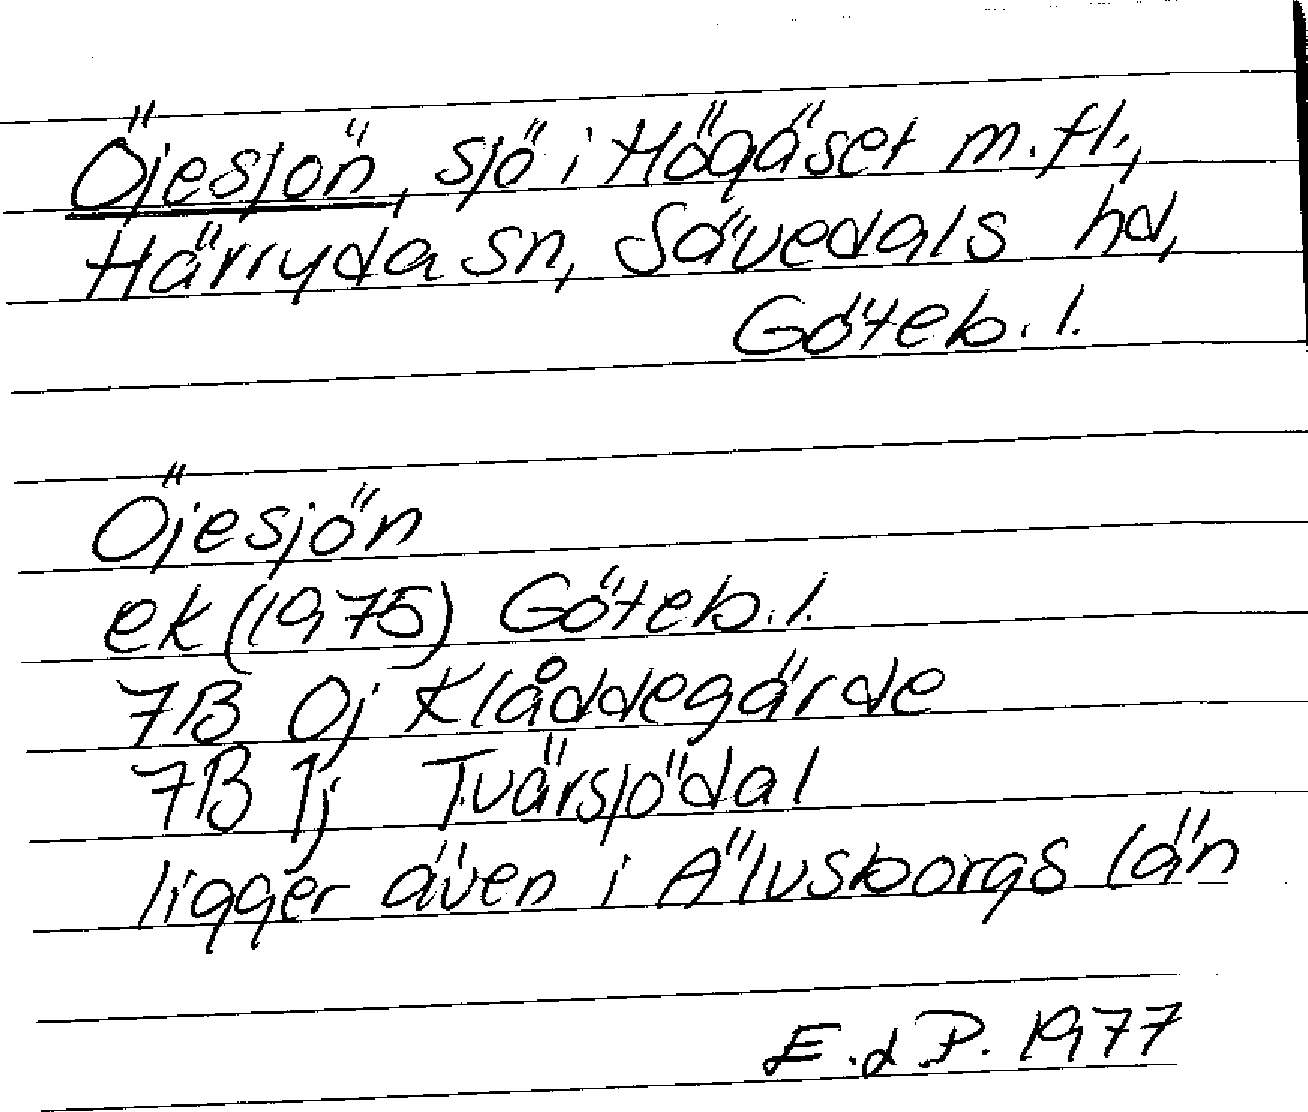 Öjesjön, sjö i Högäset m.fl.,
Härryda sn, Sävedals hd,
Göteb. l.
Öjesjön
ek (1975) Göteb. l.
7B 0j Klåddegärde
7B 1j Tvärsjödal
ligger även i Älvsborgs län
E. d P. 1977